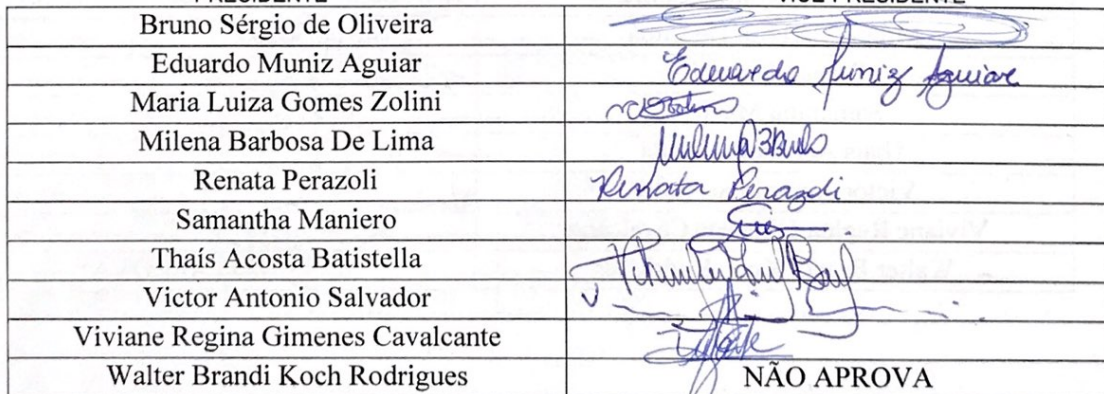 PRESIDENTE VICE PRESIDENTE
Bruno Sérgio de Oliveira
Eduardo Muniz Aguiar Eduardo Muniz Aguiar
Maria Luiza Gomes Zolini
Milena Barbosa De Lima
Renata Perazoli Renata Perazoli
Samantha Maniero
Thaís Acosta Batistella
Victor Antonio Salvador
Viviane Regina Gimenes Cavalcante
Walter Brandi Koch Rodrigues NÃO APROVA